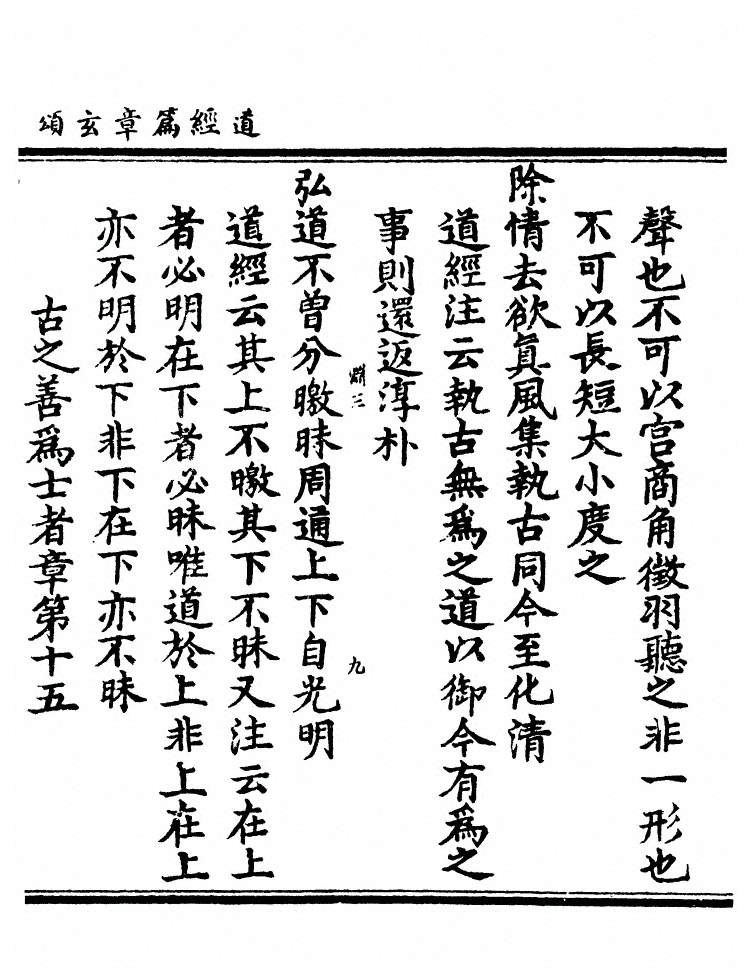 道經篇章玄頌
聲也不可以宮商角徵羽聽之非一形也
不可以長短大小度之
除情去欲眞風集執古同今至化清
道經注云執古無爲之道以御今有爲之
事則還返淳朴
弘道不曾分曒昧周通上下自光明
道經云其上不曒其下不昧又注云在上
者必明在下者必昧唯道於上非上在上
亦不明於下非下在下亦不昧
古之善爲士者章第十五
九